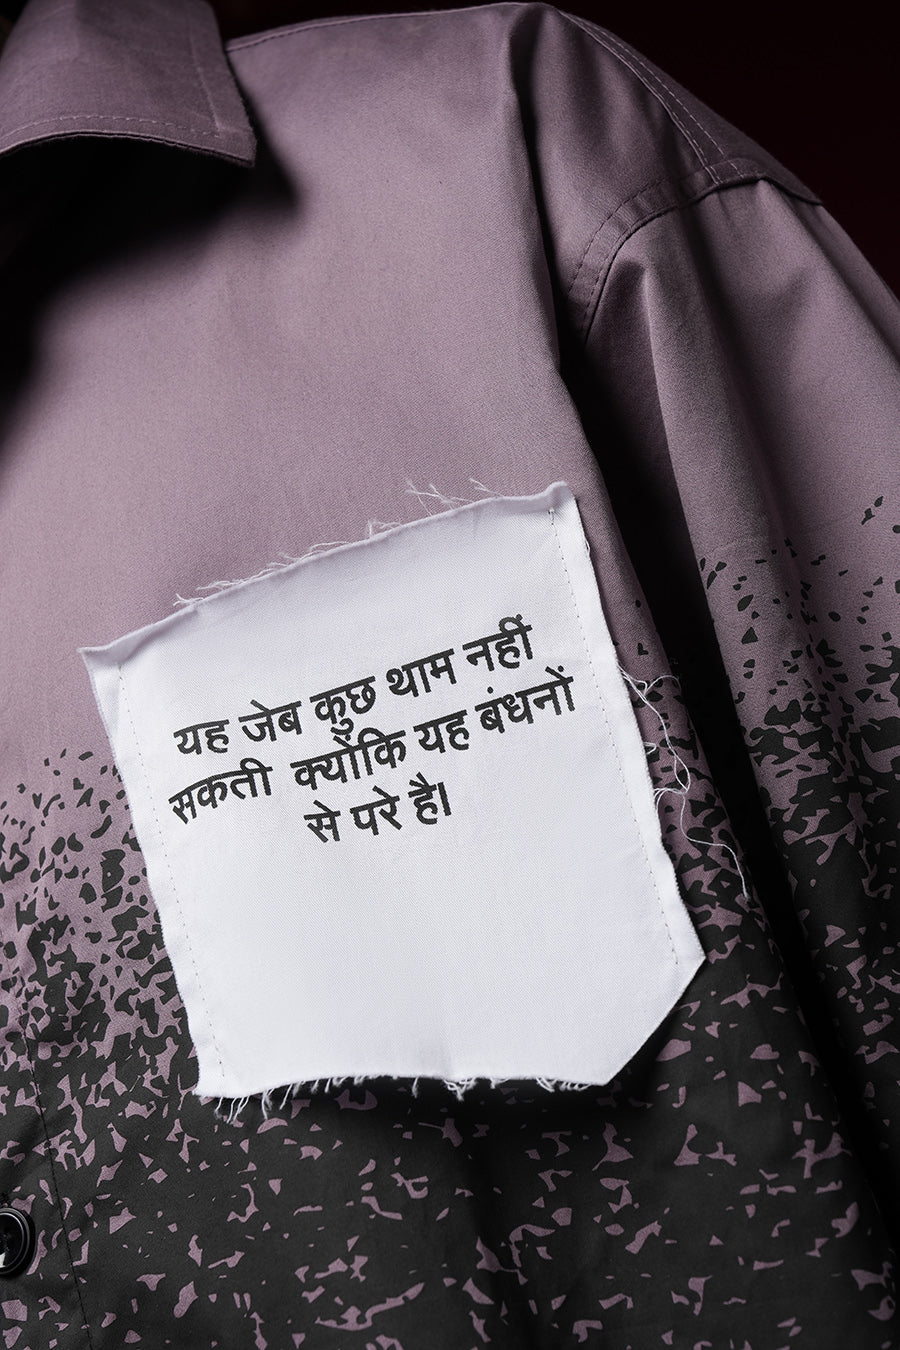 यह जेब कुछ थाम नहीं
सकती क्योंकि यह बंधनों
से परे है।